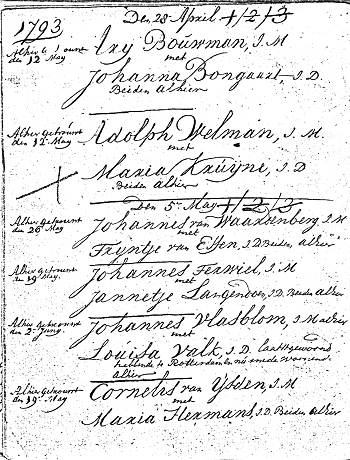 1793
Den 28 April +/2/3
Alhier getrouwt
den 12 May
Ary Bouwman, J.M
met
Johanna Bongaart, J.D.
Beiden alhier
Alhier Getrouwt
den 12 May
Adolph Welman, J.M.
met
Maria Kruijne, J.D
Beiden alhier
Den 5 May +/2/3
Alhier Getrouwt
den 26 May
Johannes van Waardenberg J.M
met
Fryntje van Essen, J.D. Beiden, alhier
Alhier Getrouwt
den 19 May.
Johannes Terwiel, J.M
met
Jannetje Langendoen, J.D. Beiden alhier
Alhier Getrouwt
den 2 Juny.
Johannes Vlasblom, J.M alhier
met
Louisa Valk, J.D. laatstgewoond
hebbende te Rotterdam en nu mede woonende
alhier
Alhier Getrouwt
den 19 May
Cornelis van Ysden, J.M
met
Maria Hermans, J.D. Beiden alhier